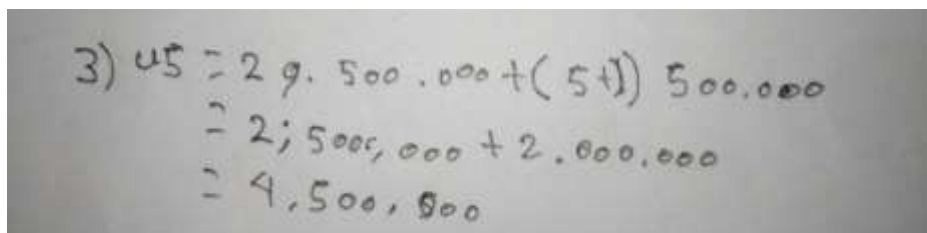 3) U5 = 2 9. 500.000 + ( 5+1) 500.000
= 2; 500, 000 + 2.000.000
= 4.500, 000